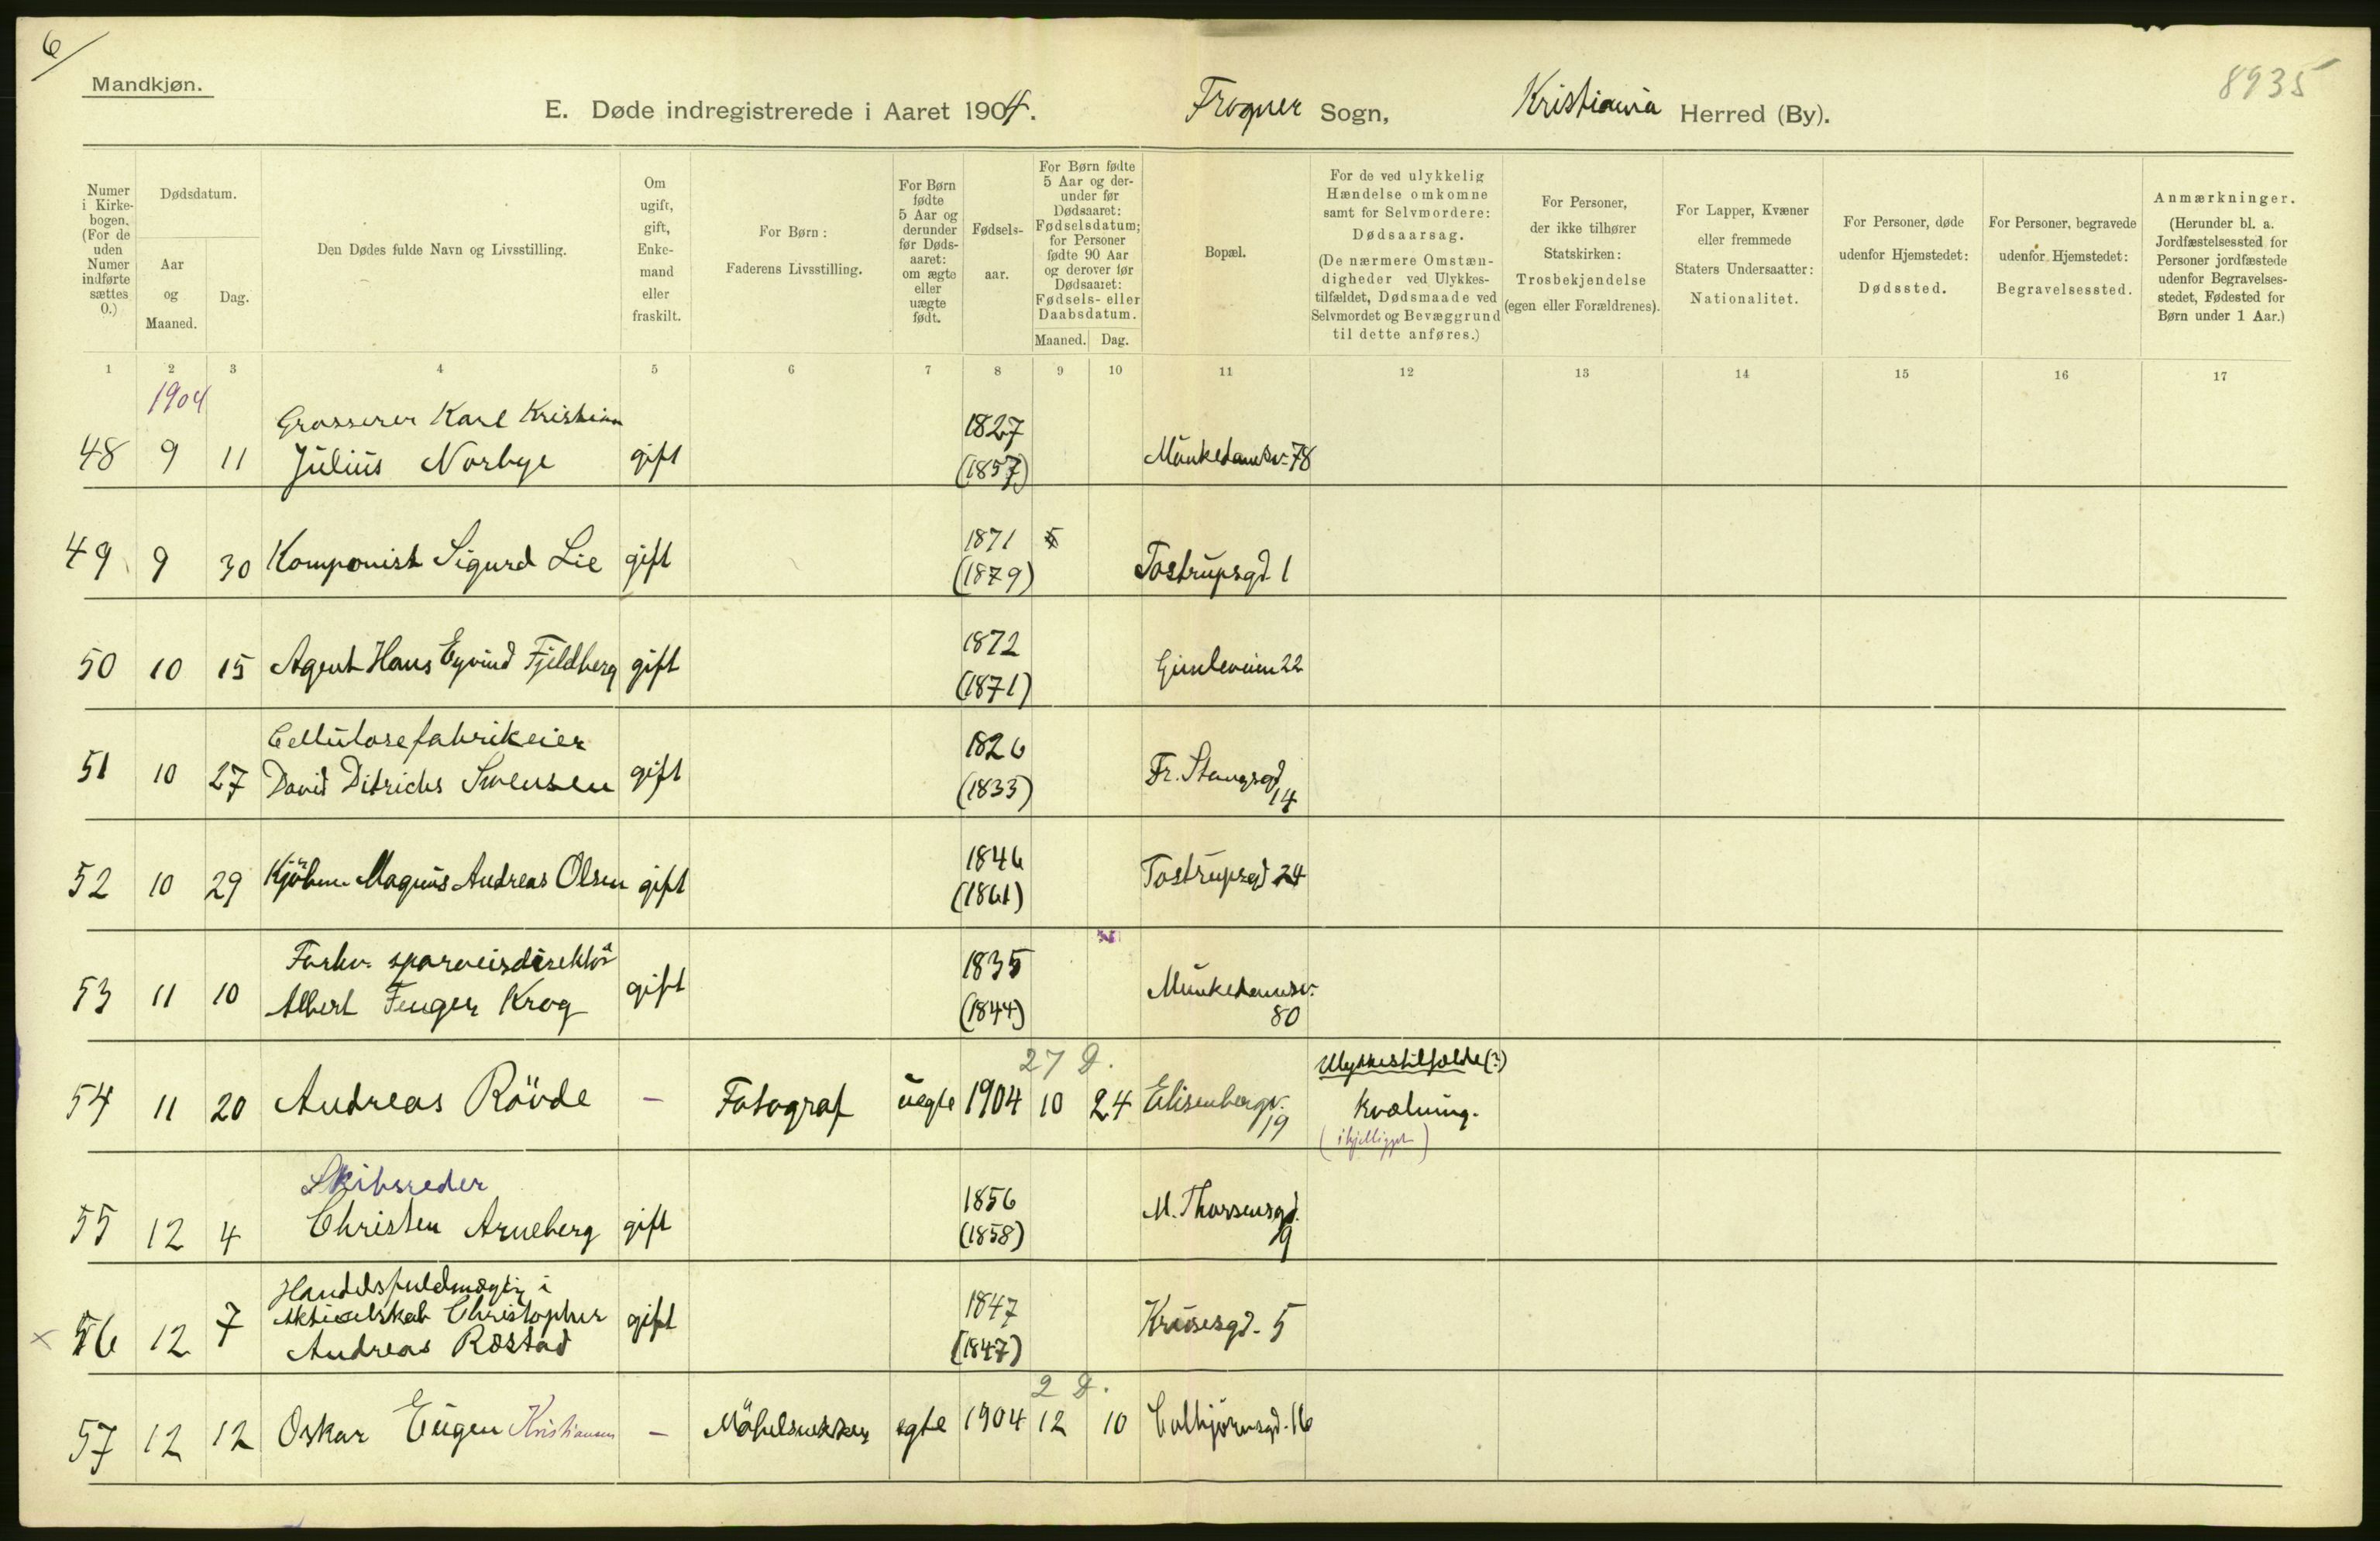 6
Mandkjøn.
8935
E. Døde indregistrerede i Aaret 1904. Frogner Sogn, Kristiania Herred (By).
Numer i Kirke-bogen. (For de uden Numer indførte sættes 0.)
Dødsdatum.
Aar og Maaned.
Dag.
Den Dødes fulde Navn og Livsstilling.
Om ugift, gift, Enke-mand eller fraskilt.
For Børn: Faderens Livsstilling.
For Børn fødte 5 Aar og derunder før Døds-aaret: om ægte eller uægte født.
Fødsels-aar.
For Børn fødte 5 Aar og der-under før Dødsaaret: Fødselsdatum; for Personer fødte 90 Aar og derover før Dødsaaret: Fødsels- eller Daabsdatum.
Maaned. Dag.
Bopæl.
For de ved ulykkelig Hændelse omkomne samt for Selvmordere: Dødsaarsag. (De nærmere Omstæn-digheder ved Ulykkes-tilfældet, Dødsmaade ved Selvmordet og Bevæggrund til dette anføres.)
For Personer, der ikke tilhører Statskirken: Trosbekjendelse (egen eller Forældrenes).
For Lapper, Kvæner eller fremmede Staters Undersaatter: Nationalitet.
For Personer, døde udenfor Hjemstedet: Dødssted.
For Personer, begravede udenfor Hjemstedet: Begravelsessted.
Anmærkninger. (Herunder bl. a. Jordfæstelsessted for Personer jordfæstede udenfor Begravelses-stedet, Fødested for Børn under 1 Aar.)
1 2 3 4 5 6 7 8 9 10 11 12 13 14 15 16 17
1904
Grosserer Karl Kristian 1827
48 9 11 Julius Norbye gift (1857) Munkedamsv. 78
1871
49 9 30 Komponist Sigurd Lie gift (1879) Tostrupsgd. 1
1872
50 10 15 Agent Hans Eyvind Fjeldberg gift (1871) Gimleveien 22
Cellulosefabrikeier 1826
51 10 27 David Ditrichs Svensen gift (1833) Fr. Stangsgd. 14
1846
52 10 29 Kjöbm. Magnus Andreas Olsen gift (1861) Tostrupsgd 24
Forhv. sporveisdirektör 1835
53 11 10 Albert Fenger Krog gift (1844) Munkedamsv. 80
27 D. Ulykkestilfælde (?)
54 11 20 Andreas Rövde – Fotograf uegte 1904 10 24 Elisenbergv. 19 Kvælning.
(ihjelligget)
Skibsreder 1856
55 12 4 Christen Arneberg gift (1858) M. Thorsensgd. 9
Handelsfuldmægtig i
Aktieselskab Christopher 1847
× 56 12 7 Andreas Rostad gift (1847) Krusesgd. 5
2 D.
57 12 12 Oskar Eugen Kristiansen – Möbelsnekker egte 1904 12 10 Colbjörnsgd. 16